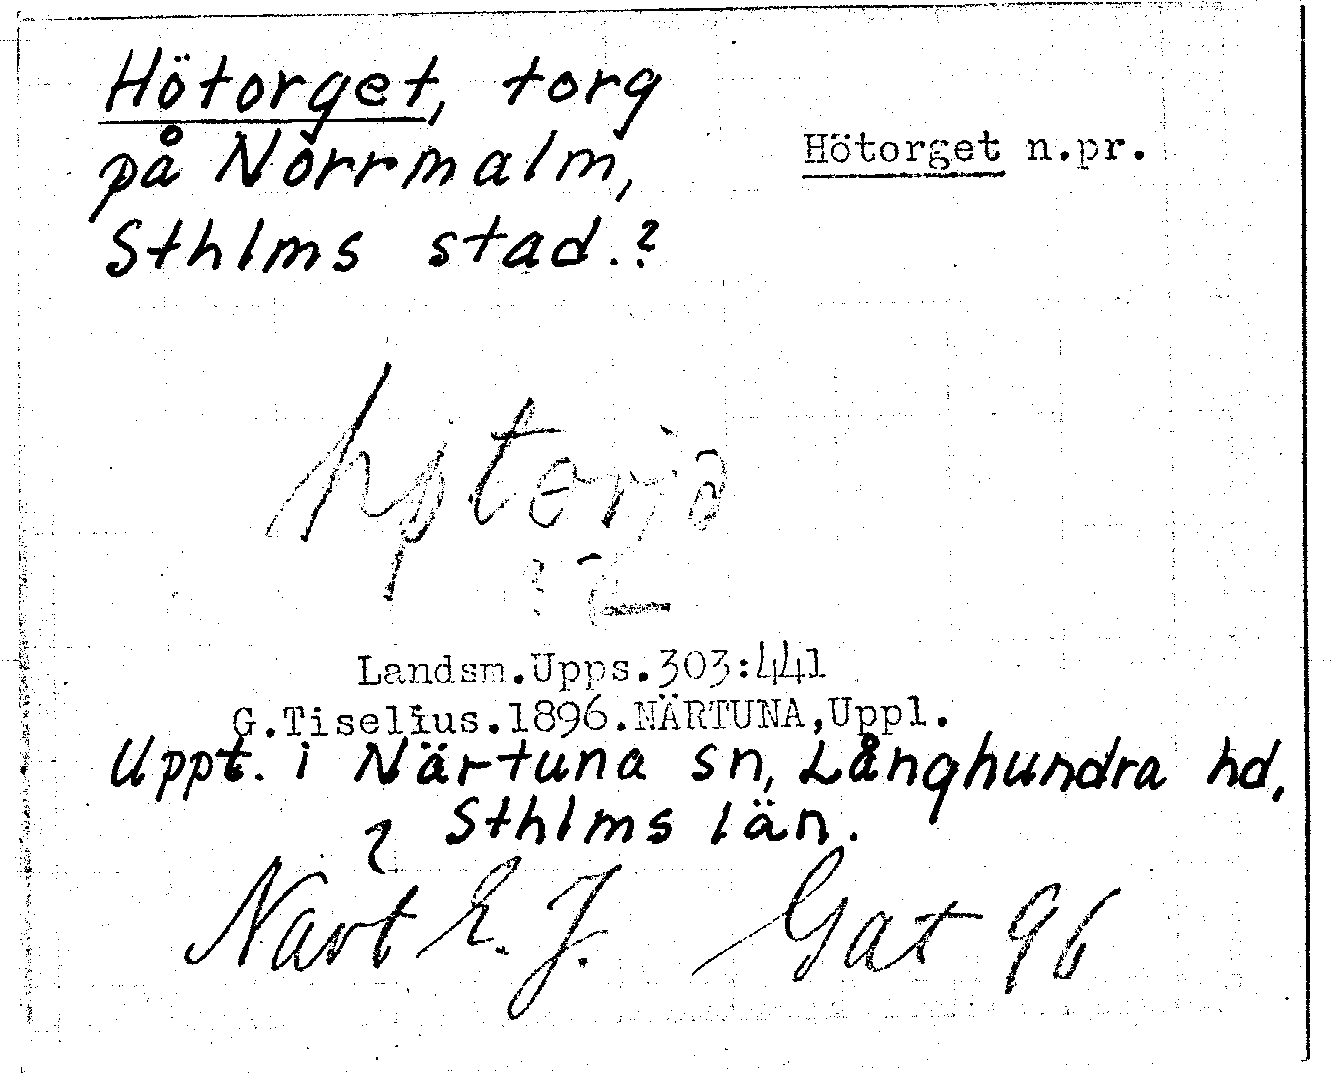 Hötorget, torg
på Norrmalm,
Sthlms stad.?
Hötorget n.pr.
Landsm.Upps.303:441
G.Tiselius.1896.NÄRTUNA,Uppl.
Uppt. i Närtuna sn, Långhundra hd,
Sthlms län.
Närt E. J. Gat 96